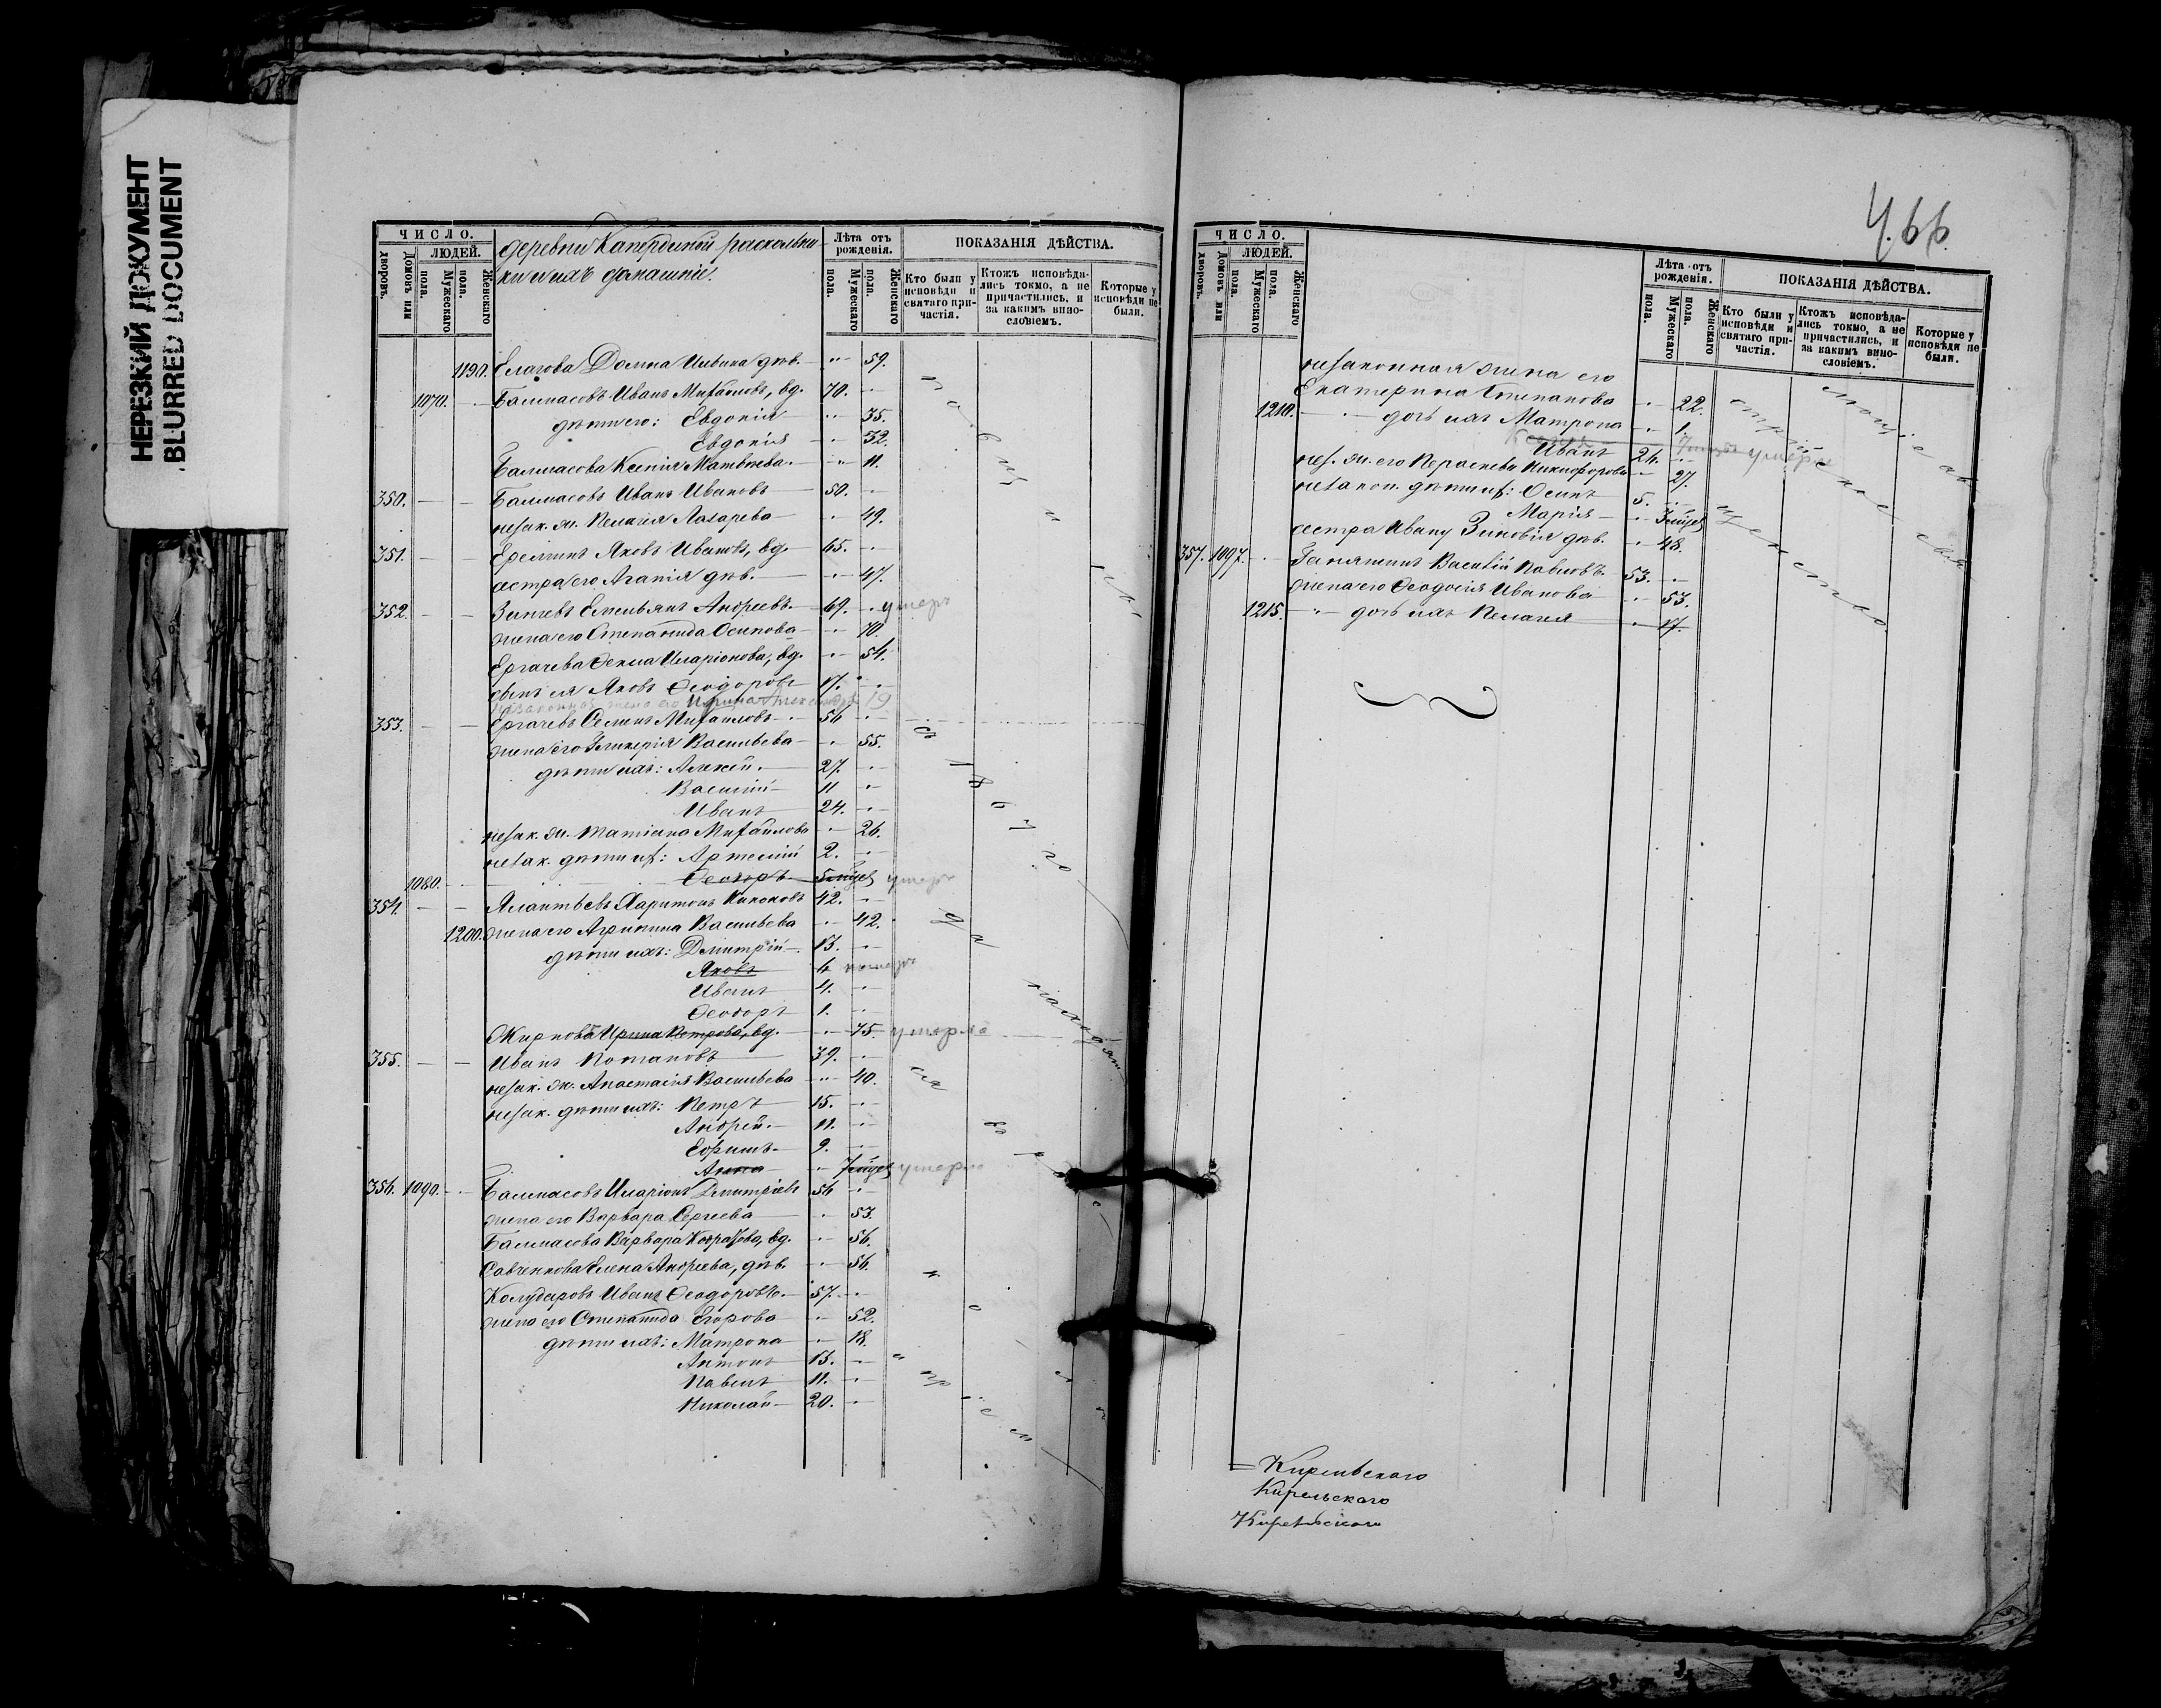 НЕРЕЗКИЙ ДОКУМЕНТ
BLURRED DOCUMENT
ЧИСЛО.
ЛЮДЕЙ.
Домовъ или дворовъ.
Мужескаго пола.
Женскаго пола.
деревни Капердиной раскольни-
ки и ихъ домашніе.
Лѣта отъ рожденія.
Мужескаго пола.
Женскаго пола.
ПОКАЗАНІЯ ДѢЙСТВА.
Кто были у исповѣди и святаго причастія.
Ктожъ исповѣдались токмо, а не причастились, и за какимъ винословіемъ.
Которые у исповѣди не были.
1190. Домна дѣв. 59.
1070. Балмасовъ Иванъ Михайловъ, вд. 70.
дѣти его: Евдокія 35.
Евдокія 32.
Балмасова Ксенія Матвѣева 11.
350. Балмасовъ Иванъ Ивановъ 50.
незак. ж. Пелагія Лазарева 49.
351. Ереминъ Яковъ Ивановъ, вд. 45.
сестра его Агапія дѣв. 47.
352. Емельянъ Андреевъ 69. умеръ
жена его Степанида Осипова 70.
Ергачева Ѳекла Иларіонова, вд. 54.
сынъ ея Яковъ Ѳеодоровъ 17.
жена его Ирина 19
353. Ергачевъ Семенъ Михайловъ 56
жена его Гликерія Васильева 55.
дѣти ихъ: Алексѣй 27.
Василій 11
Иванъ 24.
незак. ж. Татіана Михайлова 26.
незак. дѣти их: Артемій 2.
1080. Ѳеодоръ 5 мѣс умеръ
354. Харитонъ 42.
1200. жена его Агрипина Васильева 42.
дѣти ихъ: Дмитрій 13.
Яковъ 6 умеръ
Иванъ 4.
Ѳеодоръ 1.
Жирнова Ирина Петрова, вд. 75. умерла
355. Иванъ Потаповъ 39.
незак. ж. Анастасія Васильева 40.
незак. дѣти ихъ: Петръ 15.
Андрей 11.
Ефимъ 9.
Анна 7 мѣс умерла
356. 1090. Балмасовъ Иларіонъ Дмитріевъ 56
жена его Варвара Сергеева 53.
Балмасова Варвара вд. 56.
Савченкова Елена Андреева, дѣв. 56.
Колударовъ Иванъ Ѳеодоровъ 57.
жена его Степанида Егорова 52.
дѣти ихъ: Матрона 18.
Антонъ 13.
Павелъ 11.
Николай 20.
съ 1867 го
466.
ЧИСЛО.
ЛЮДЕЙ.
Домовъ или дворовъ.
Мужескаго пола.
Женскаго пола.
Лѣта отъ рожденія.
Мужескаго пола.
Женскаго пола.
ПОКАЗАНІЯ ДѢЙСТВА.
Кто были у исповѣди и святаго причастія.
Ктожъ исповѣдались токмо, а не причастились, и за какимъ винословіемъ.
Которые у исповѣди не были.
незаконная жена его
Екатерина Степанова 22.
1210. дочь ихъ Матрона 1.
умерла
Иванъ 24.
нез. ж. его Параскева Никифорова 27.
незакон. дѣти их: Осипъ 5.
Марія 3 мѣс
сестра Ивану Зиновія дѣв. 48.
357. 1097. Василій Павловъ 53.
жена его Ѳеодосія Иванова 53.
1215. дочь ихъ Пелагея 17.
Кирельскаго
Кирельскаго
Кирельскаго